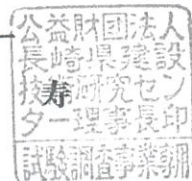 公益財団法人
長崎県建設
技術研究セン
ター理事長印
試験調査事業
寿